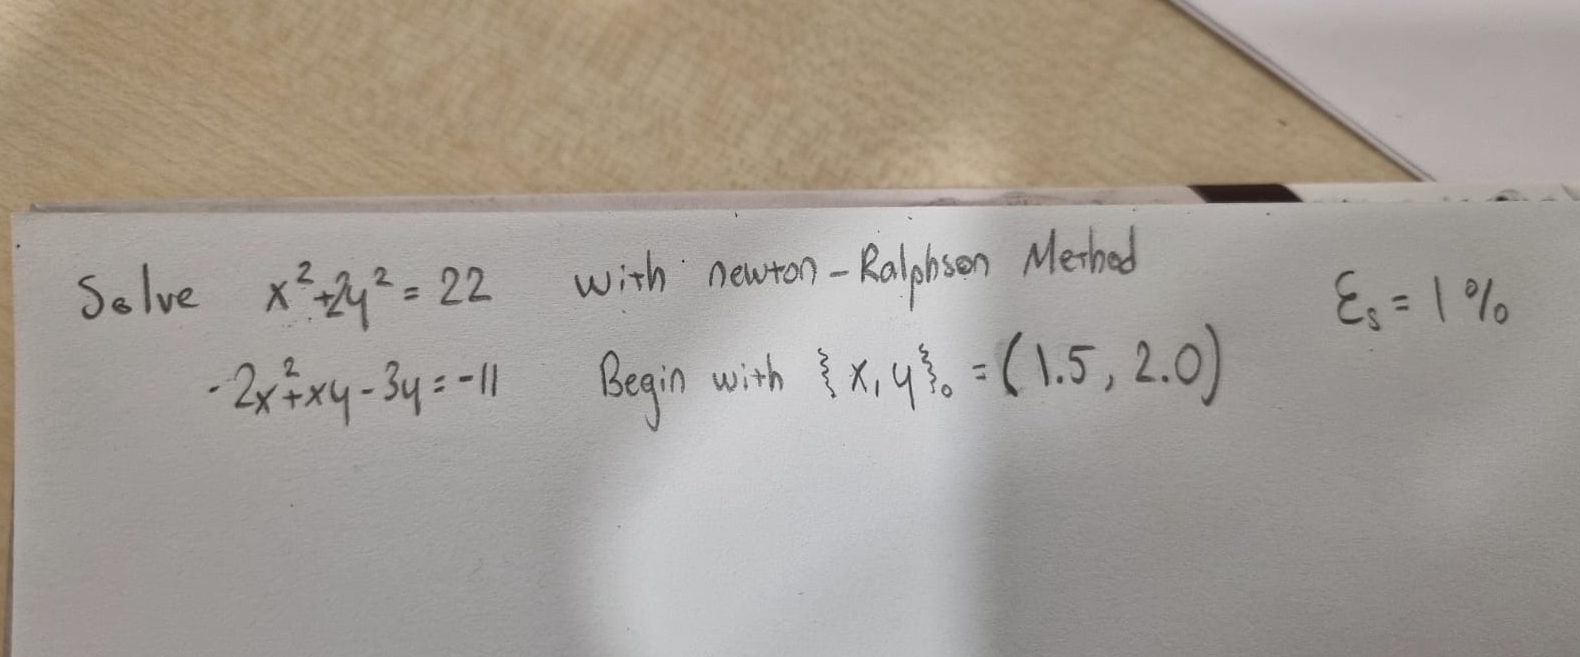 Solve x²+2y² = 22 with newton-Ralphson Method εs = 1%
-2x²+xy-3y = -11 Begin with {x,y}₀ = (1.5, 2.0)